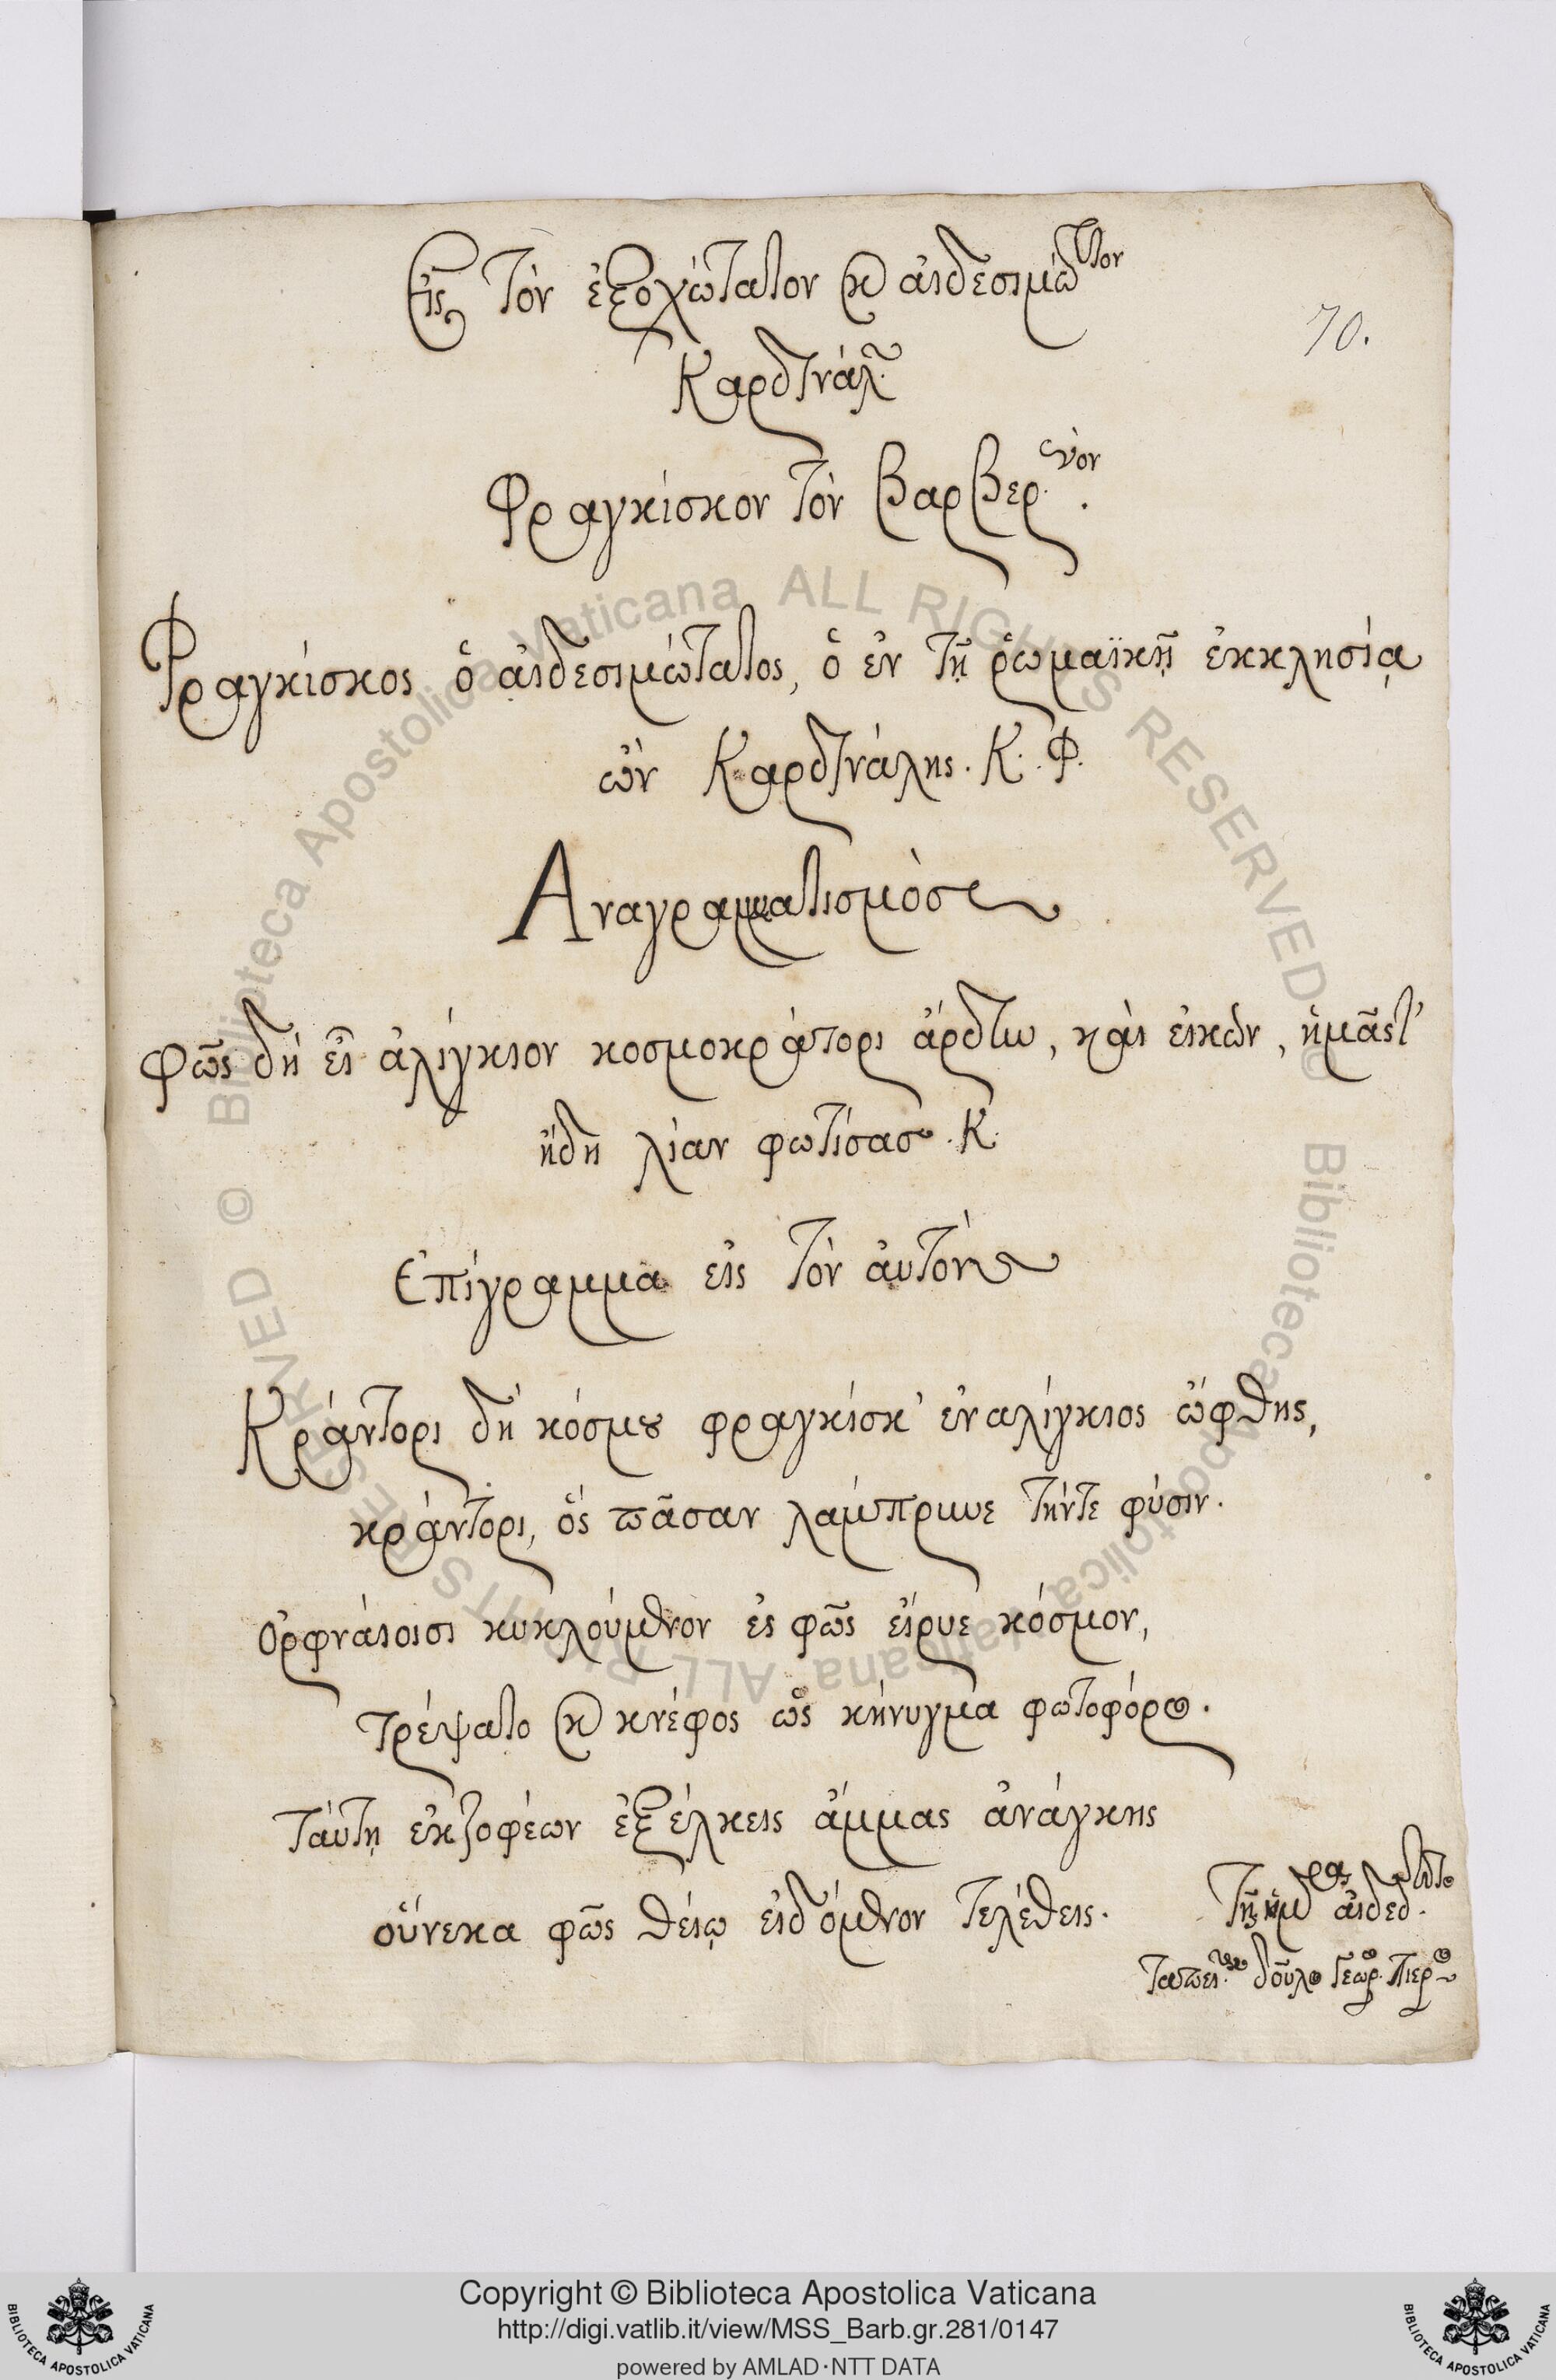 Εἰς τὸν ἐξοχώτατον κ αἰδεσιμώτατον
70.
Καρδινάλ.
Φραγκίσκον τὸν Βαρβερ.νον.
Φραγκίσκος ὁ αἰδεσιμώτατος, ὁ ἐν τῇ ῥωμαϊκῇ ἐκκλησίᾳ
ὢν Καρδινάλης. Κ. Φ.
Αναγραμματισμὸς
Φῶς δὴ εἶ ἀλίγκιον κοσμοκράτορι ἄρδτω, καὶ εἰκὼν, ἡμᾶς τ'
ἤδη λίαν φωτίσας. Κ.
Επίγραμμα εἰς τὸν ἀυτὸν
Κράντορι δὴ κόσμου φραγκίσκ' ἐναλίγκιος ὤφθης,
κράντορι, ὃς πᾶσαν λάμπρυνε τήντε φύσιν.
Ορφνάιοισι κυκλούμενον ἐς φῶς εἴρυε κόσμον,
τρέψατο κ κνέφος ὡς κήνυγμα φωτοφόρος.
Τάυτῃ ἐκζοφέων ἐξέλκεις ἄμμας ἀνάγκης
οὕνεκα φῶς θείῳ εἰδόμενον τελέθεις.
Τῆς ἡμ αἰδεσ.
Ταπει. δοῦλος Γεώρ. Πιερ
Copyright © Biblioteca Apostolica Vaticana
http://digi.vatlib.it/view/MSS_Barb.gr.281/0147
powered by AMLAD·NTT DATA
BIBLIOTECA APOSTOLICA VATICANA
BIBLIOTECA APOSTOLICA VATICANA
© Biblioteca Apostolica Vaticana ALL RIGHTS RESERVED
© Biblioteca Apostolica Vaticana ALL RIGHTS RESERVED